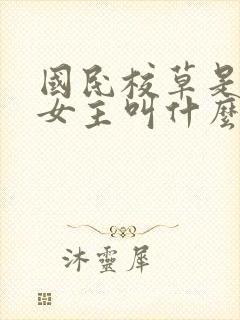 國民校草是
女主叫什麼
沐靈犀